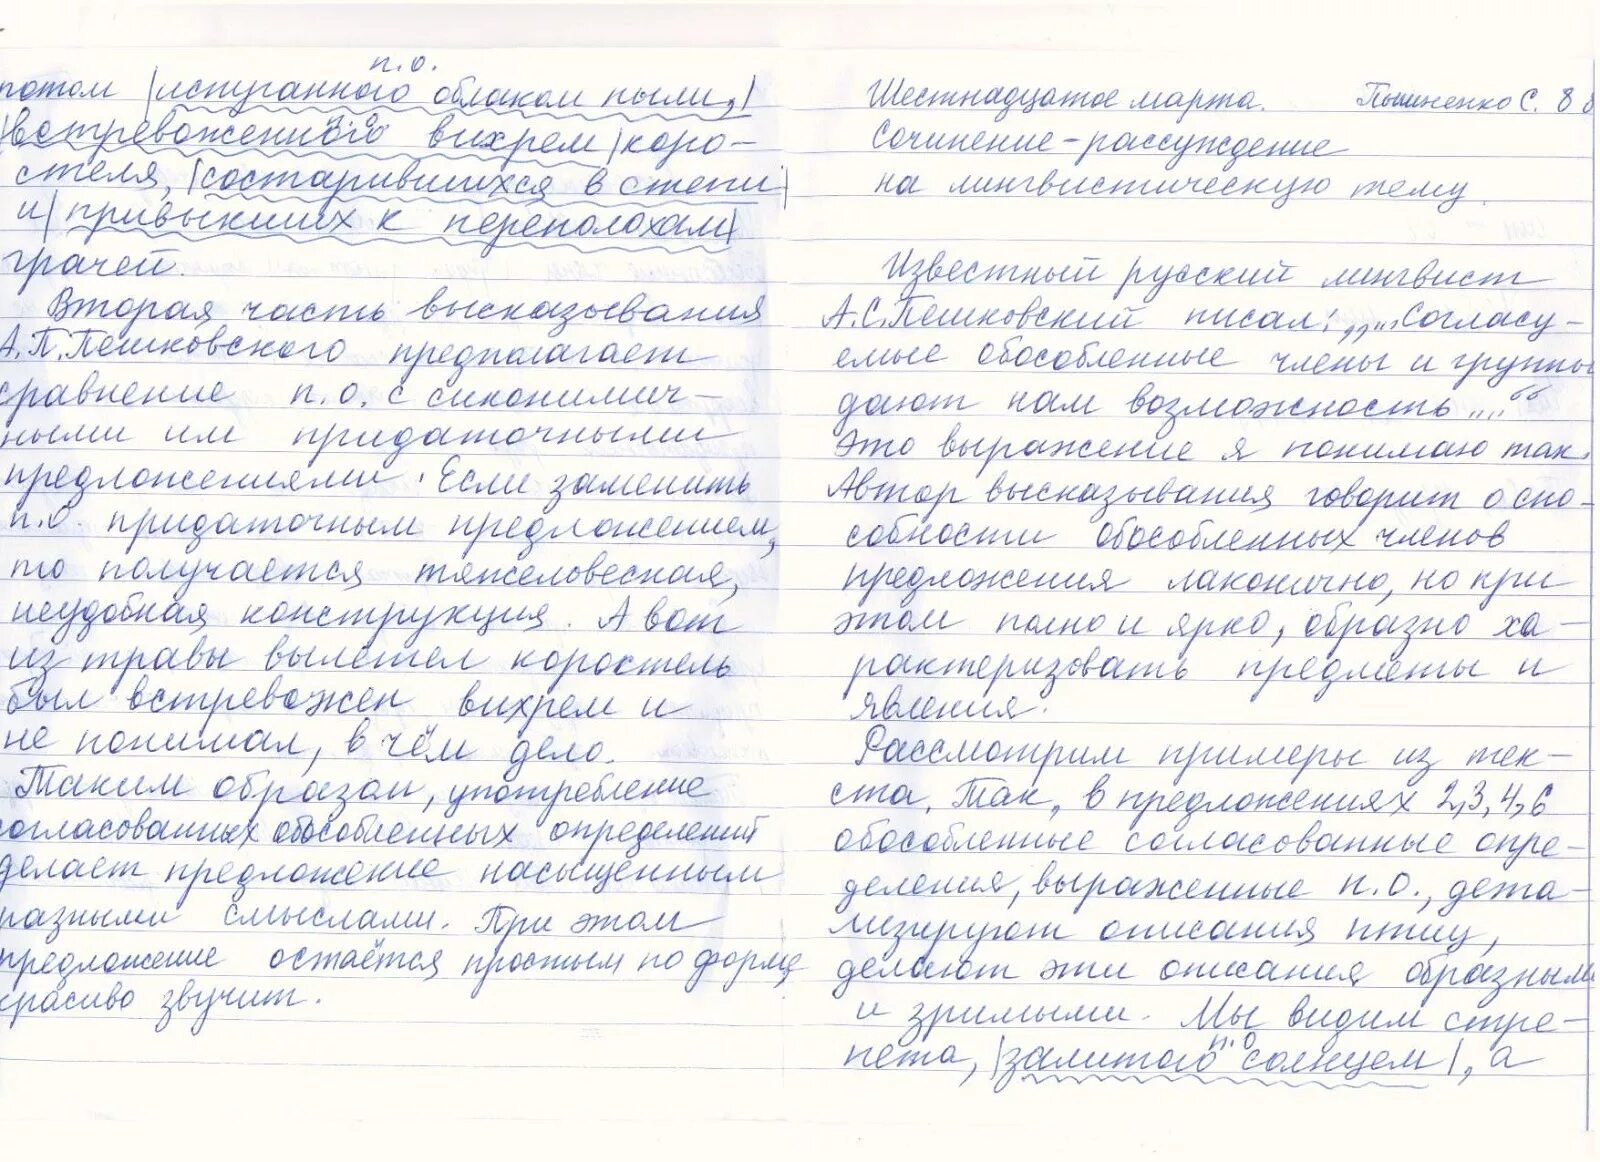 п.о.
потом |испуганного облаком пыли,|
|встревоженного вихрем| коро-
стеля, |состарившихся в степи|
и |привыкших к переполохам|
грачей.
Вторая часть высказывания
А.П.Пешковского предполагает
сравнение п.о. с синонимич-
ными им придаточными
предложениями. Если заменить
п.о. придаточным предложением,
то получается тяжеловесная,
неудобная конструкция. А вот
из травы вылетел коростель
был встревожен вихрем и
не понимал, в чём дело.
Таким образом, употребление
согласованных обособленных определений
делает предложение насыщенным
разными смыслами. При этом
предложение остаётся простым по форме
красиво звучит.
Шестнадцатое марта. С. 8
Сочинение-рассуждение
на лингвистическую тему.
Известный русский лингвист
А.С.Пешковский писал: „...Согласу-
емые обособленные члены и группы
дают нам возможность ...“
Это выражение я понимаю так.
Автор высказывания говорит о спо-
собности обособленных членов
предложения лаконично, но при
этом полно и ярко, образно ха-
рактеризовать предметы и
явления.
Рассмотрим примеры из тек-
ста. Так, в предложениях 2,3,4,6
обособленные согласованные опре-
деления, выраженные п.о., дета-
лизируют описания птиц,
делают эти описания образными
и зримыми. Мы видим стре-
п.о
пета, |залитого солнцем|, а